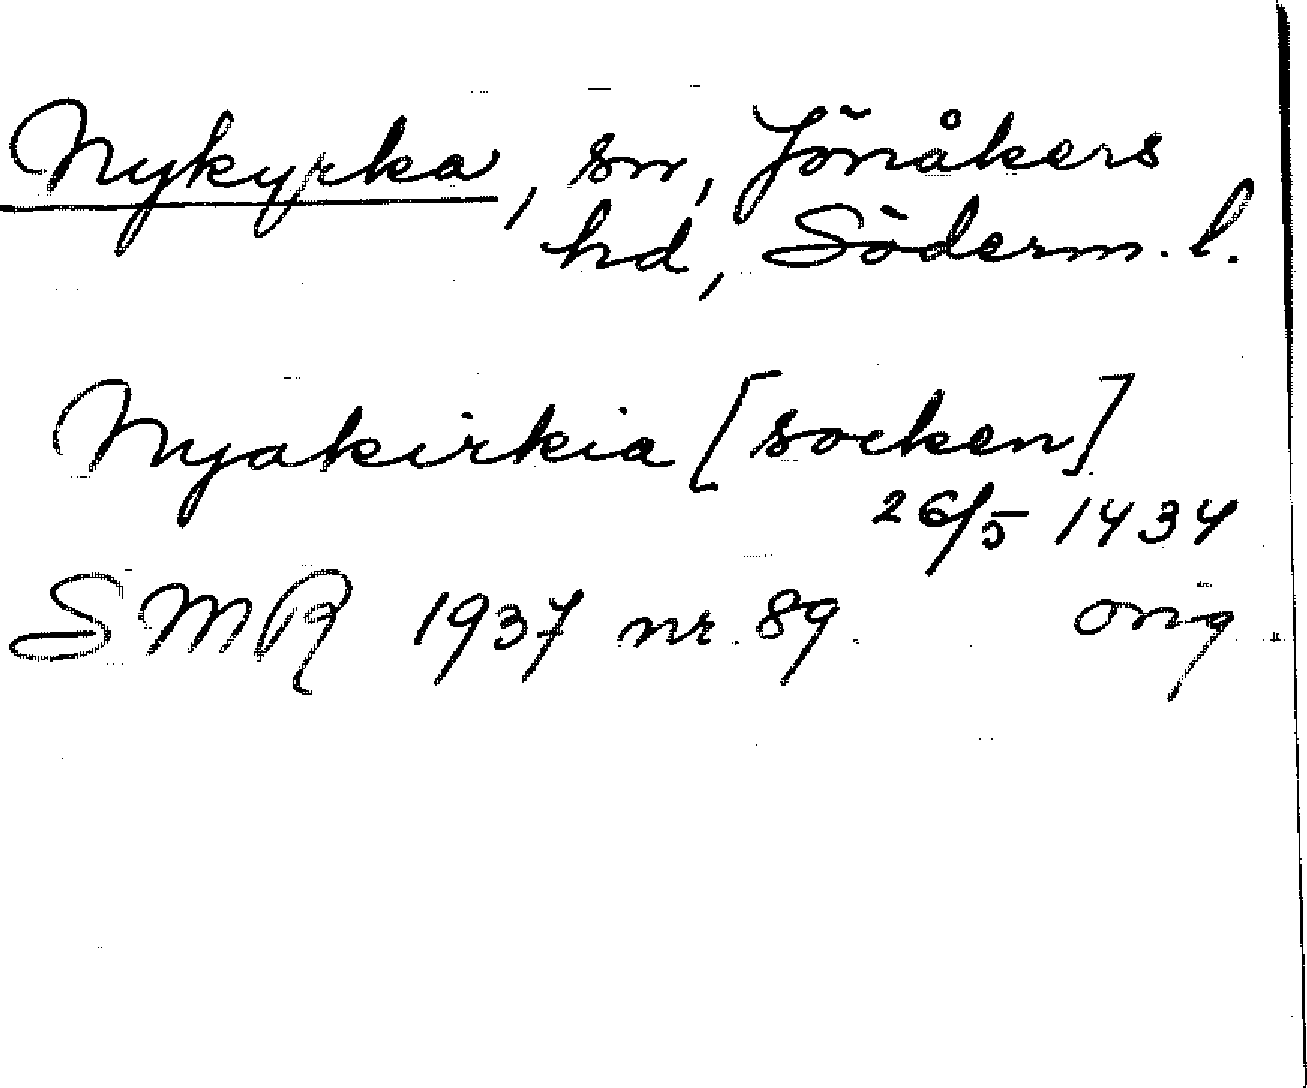 Nykyrka, sn, Jönåkers
hd, Söderm. l.
Nyakirkia [socken]
26/5 1434
SMR 1937 nr. 89. orig